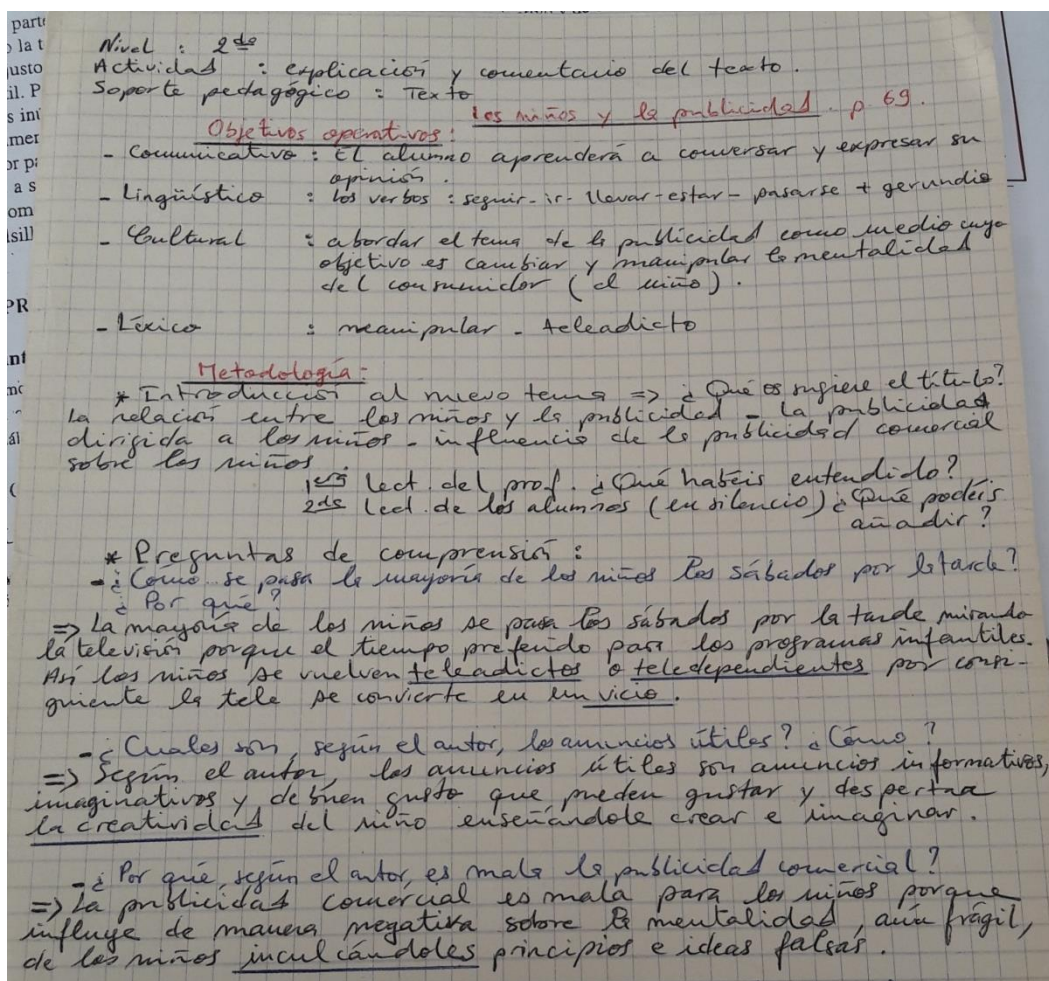 Nivel : 2de
Actividad : explicación y comentario del texto.
Soporte pedagógico : Texto
los niños y la publicidad. p 69.
Objetivos operativos :
- Comunicativo : El alumno aprenderá a conversar y expresar su
opinión.
- Lingüístico : los verbos : seguir - ir - llevar - estar - pasarse + gerundio
- Cultural : abordar el tema de la publicidad como medio cuyo
objetivo es cambiar y manipular la mentalidad
del consumidor (el niño).
- Léxico : manipular - teleadicto
Metodología :
* Introducción al nuevo tema => ¿Qué os sugiere el título?
La relación entre los niños y la publicidad - La publicidad
dirigida a los niños - influencia de la publicidad comercial
sobre los niños
1era lect. del prof. ¿Qué habéis entendido?
2de lect. de los alumnos (en silencio) ¿Qué podéis
añadir?
* Preguntas de comprensión :
- ¿Cómo se pasa la mayoría de los niños los sábados por la tarde?
¿Por qué?
=> La mayoría de los niños se pasa los sábados por la tarde mirando
la televisión porque el tiempo preferido para los programas infantiles.
Así los niños se vuelven teleadictos o teledependientes por consi-
guiente la tele se convierte en un vicio.
- ¿Cuales son, según el autor, los anuncios útiles? ¿Cómo?
=> Según el autor, los anuncios útiles son anuncios informativos,
imaginativos y de buen gusto que pueden gustar y despertar
la creatividad del niño enseñándole crear e imaginar.
- ¿Por qué, según el autor, es mala la publicidad comercial?
=> La publicidad comercial es mala para los niños porque
influye de manera negativa sobre la mentalidad, aún frágil,
de los niños inculcándoles principios e ideas falsas.